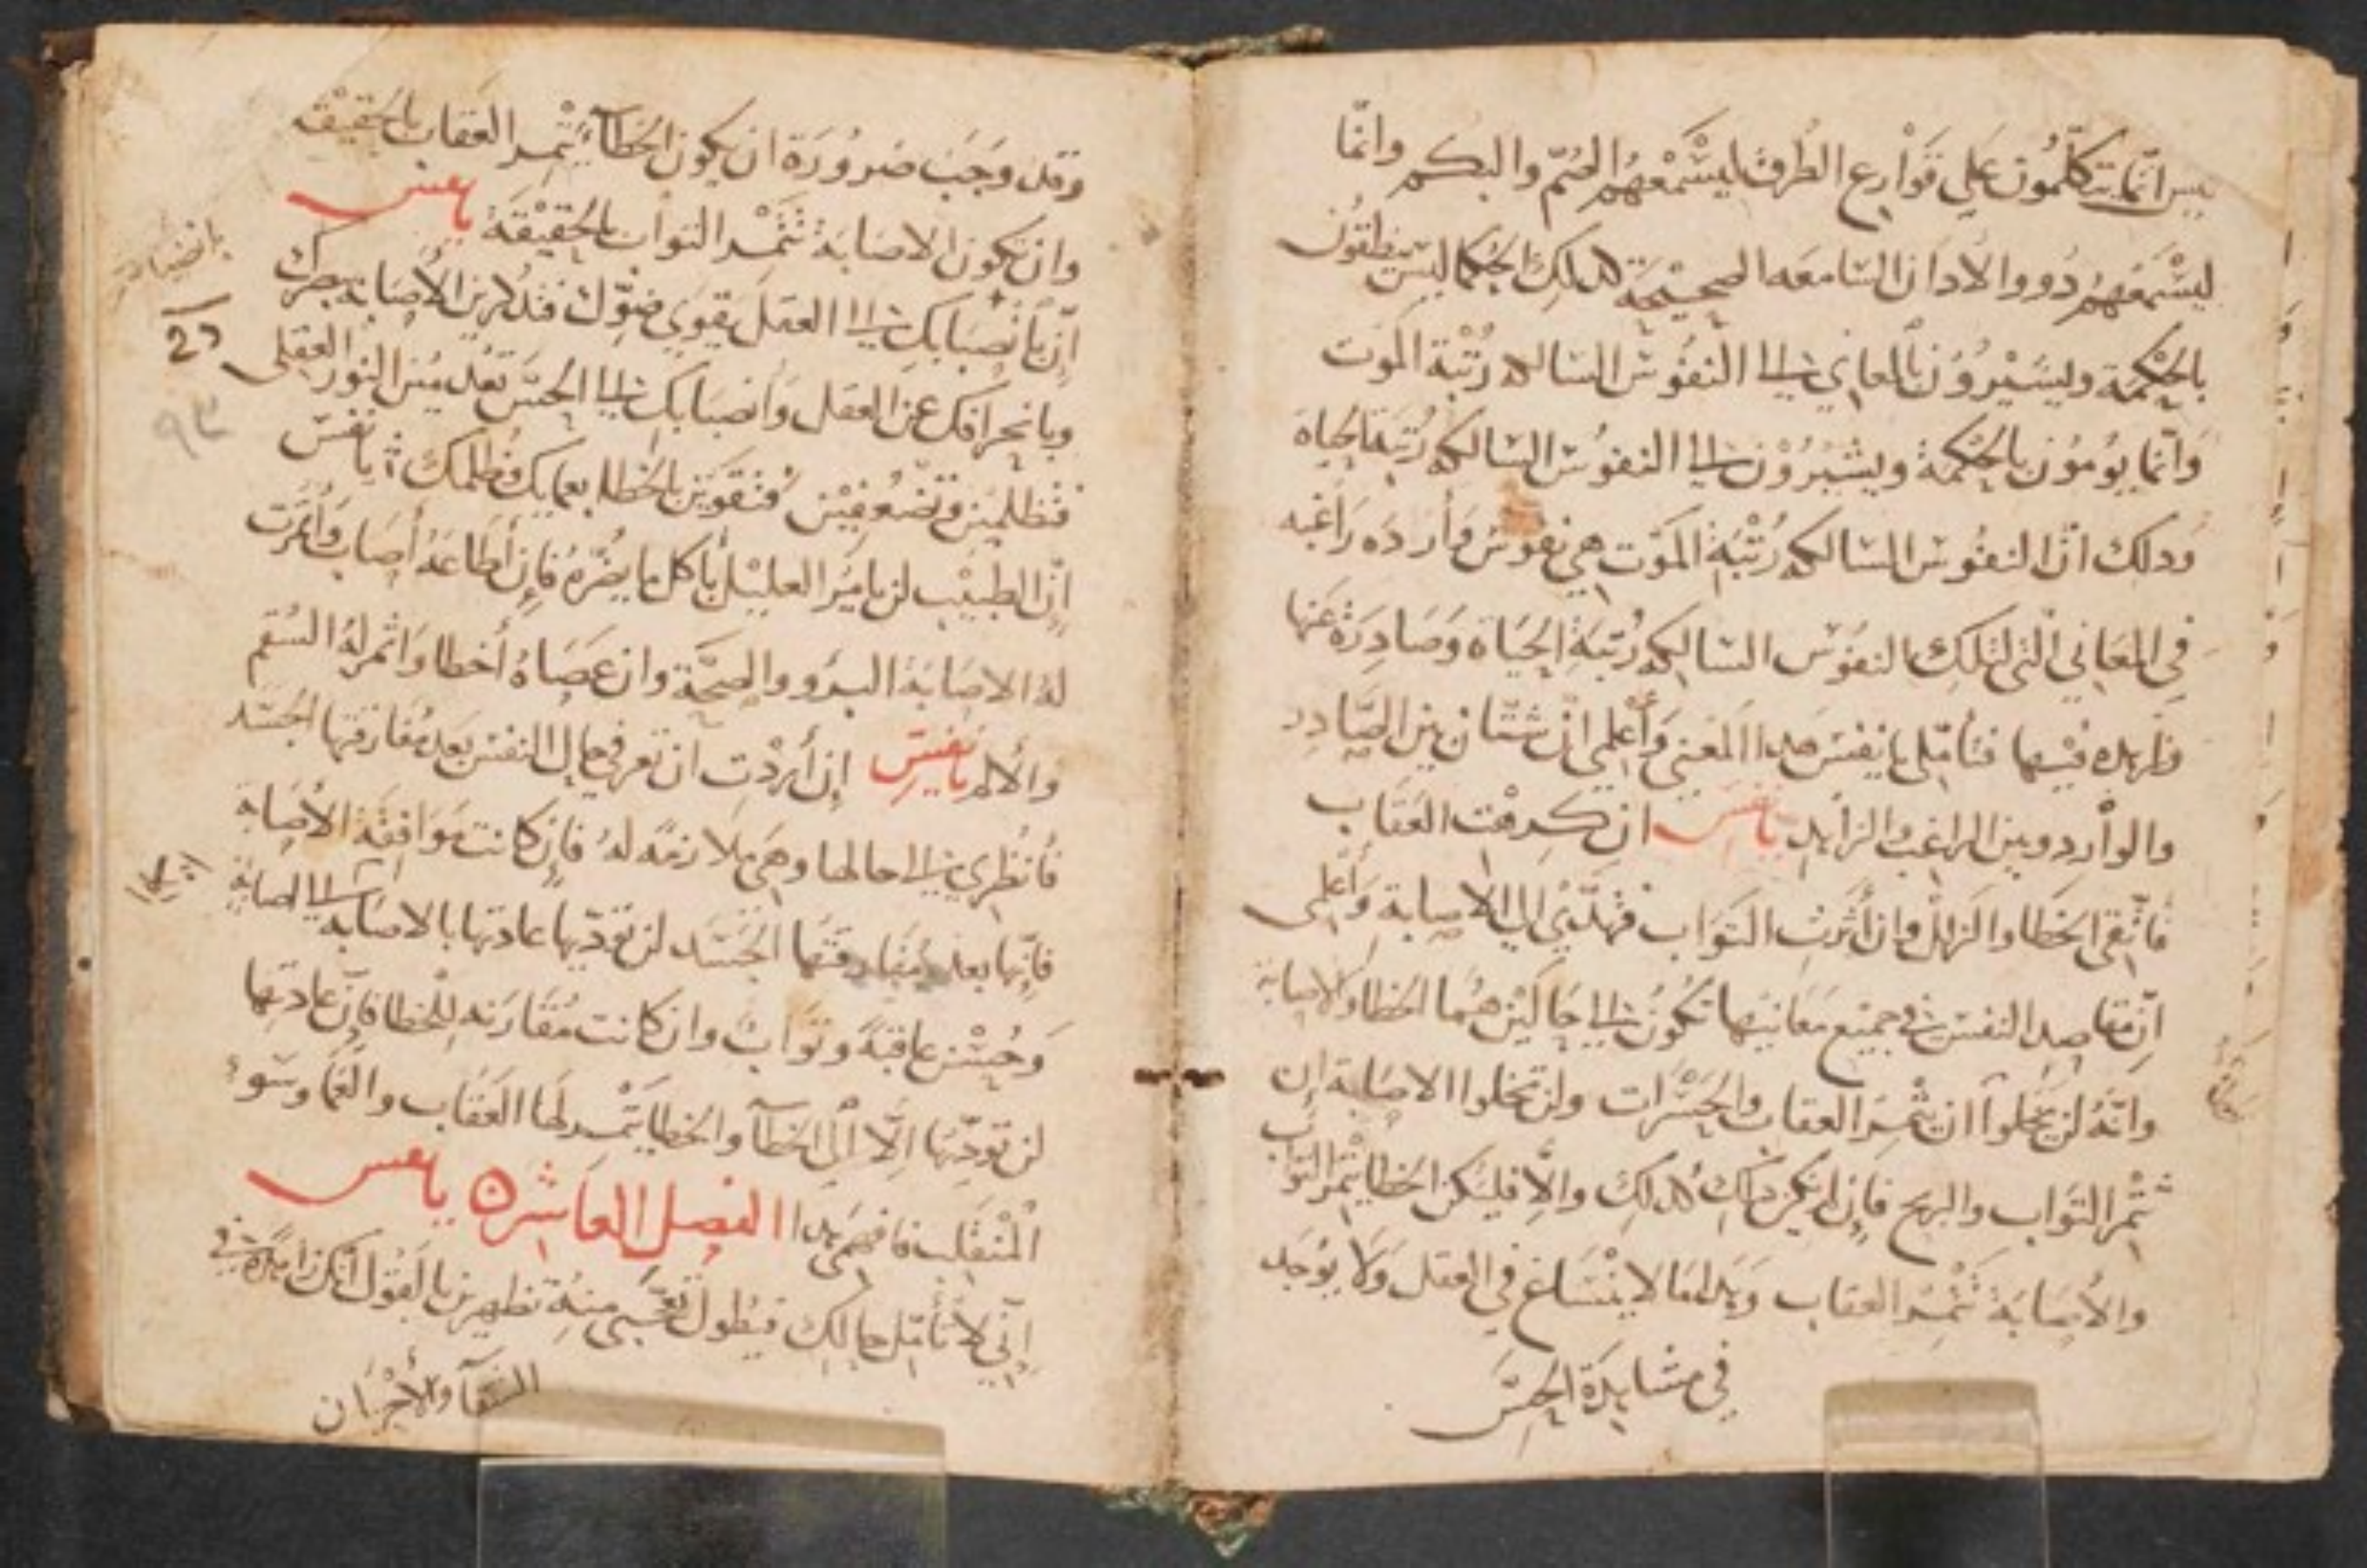 ليس انّما يتكلّمُون عَلي قَوَارِع الطُرق ليسْمعْهُم الصُمّ والبكم وانّما
ليسْمَعهُم ذووا الآذان السّامعه الصحيحَة كذلك الحُكما ليسَ ينطقُون
بالحْكمَة ويسَيْرُوُن بالمعاني الى النفُوس السّالكه رُتْبة المَوت
وَانّما يُومُون بالحِكمة ويشيْرُوْن الى النفوُس السّالكه رُتبَة الحياة
وَذلك انّ النفُوس السّالكه رُتْبَة المَوت هي نفوُس وَارِدَه رَاغبه
في المعَاني التي لتلك النفوُس السّالكه رُتبَة الحَيَاة وَصَادِرَة عَنها
زاهده فيْها فتأمّلي يا نفس هذا المعني وَأعْلمي انْ شتّان بين الصّادِر
والوَارد وبين الراغب والزاهِد يا نفس ان كرهْت العقَاب
فاتّقي الخَطا والزلل وان أثرتِ الثوَاب فهلمّي الي الاصابة وَأعلمي
انّ مقاصد النفس في جميْع مَعانيها تكوُن الى حَالَيْن هُما الخطا والاصابة
وانّهُ لن يخلوا ان يثمر العقاب والحَسَرات ولن تخلوا الاصابة ان
تثمْر الثوَاب والربح فان لم يكن ذلك كذلك والّا فليَكن الخطا يثمْر الثوَاب
والاصَابَة تثمْر العقاب وَهذا مَا لا ينْسَاغ في العقل وَلا يوُجَد
في مشاهدَة الحِسّ
وقد وَجَب ضرُورَة ان يكون الخَطاء يثْمر العقاب بالحقيقْه
وان تكون الاصَابَة تثمْر الثوَاب بالحقيْقَة يا نفس
إنّ بانصْبَابك الى العقل يقوَي ضوّك فتدْركين الأصَابة بجوهرك
وبانحرافك عن العقل وَانصبَابك الى الحسّ تعدمين النوْر العقلي
فتظْلمين وتضعُفيْن فتقوَين بالخَطا بعمايك وظلمك يا نفس
إنّ الطبيْب لن يامر العليْل بأكل ما يضرّهُ فإن أطَاعَهُ أصَاب وَأثمرَت
لهُ الاصَابة البرو والصِحّة وان عَصَاهُ أخطا وَاثمر لهُ السُقم
والالم يا نفس إن أردْتِ ان تعرفي حال النفس بعد مُفارقتها الجسَد
فانظُري الى حالها وهي ملازمَه لهُ فإن كانت مَوَافِقَة الأصَابة
فانّها بعد مُفارقتها الجَسَد لن تؤدّيها عادتها بالاصَابه الى اصابة
وَحُسْن عاقبَة وثوَاب وان كانت مُقَارنه للخطا فإنّ عادتها
لن تؤدّيها الّا الى الخَطآ والخطا يثمْر لها العقاب والغمّ وسَوء
المُنْقلَب فافهمي هذا الفصل العاشره يا نفس
إنّي لأتأمّل حالك فيطُول تعجّبي منهُ تظهرين بالقوْل انّكِ زاهدة في
الشقآ والأحْزَان